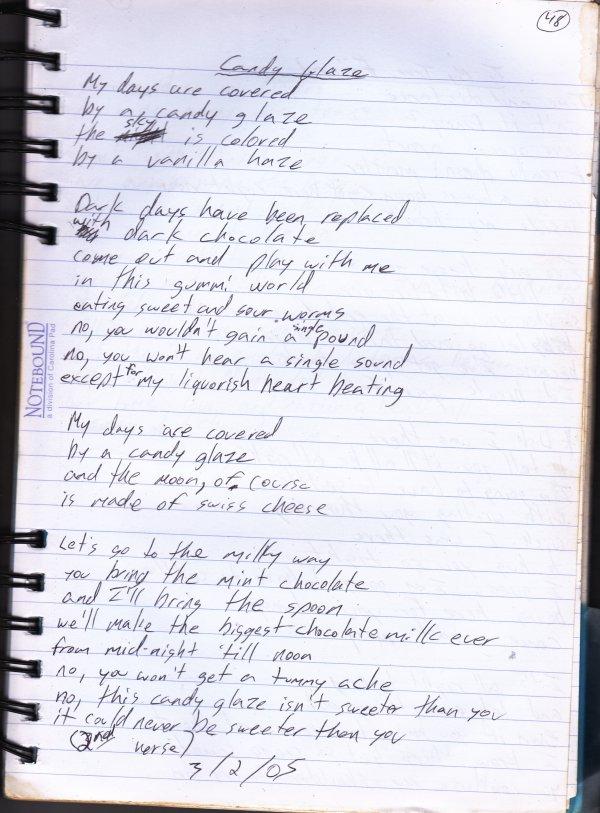 48
Candy Glaze
My days are covered
by a candy glaze
the sky is colored
by a vanilla haze
Dark days have been replaced
with dark chocolate
come out and play with me
in this gummi world
eating sweet and sour worms
no, you wouldn't gain a single pound
no, you won't hear a single sound
except for my liquorish heart beating
My days are covered
by a candy glaze
and the moon, of course
is made of swiss cheese
Let's go to the milky way
you bring the mint chocolate
and I'll bring the spoon
we'll make the biggest chocolate milk ever
from mid-night 'till noon
no, you won't get a tummy ache
no, this candy glaze isn't sweeter than you
it could never be sweeter than you
(2nd verse)
3/2/05
NOTEBOUND
a division of Carolina Pad